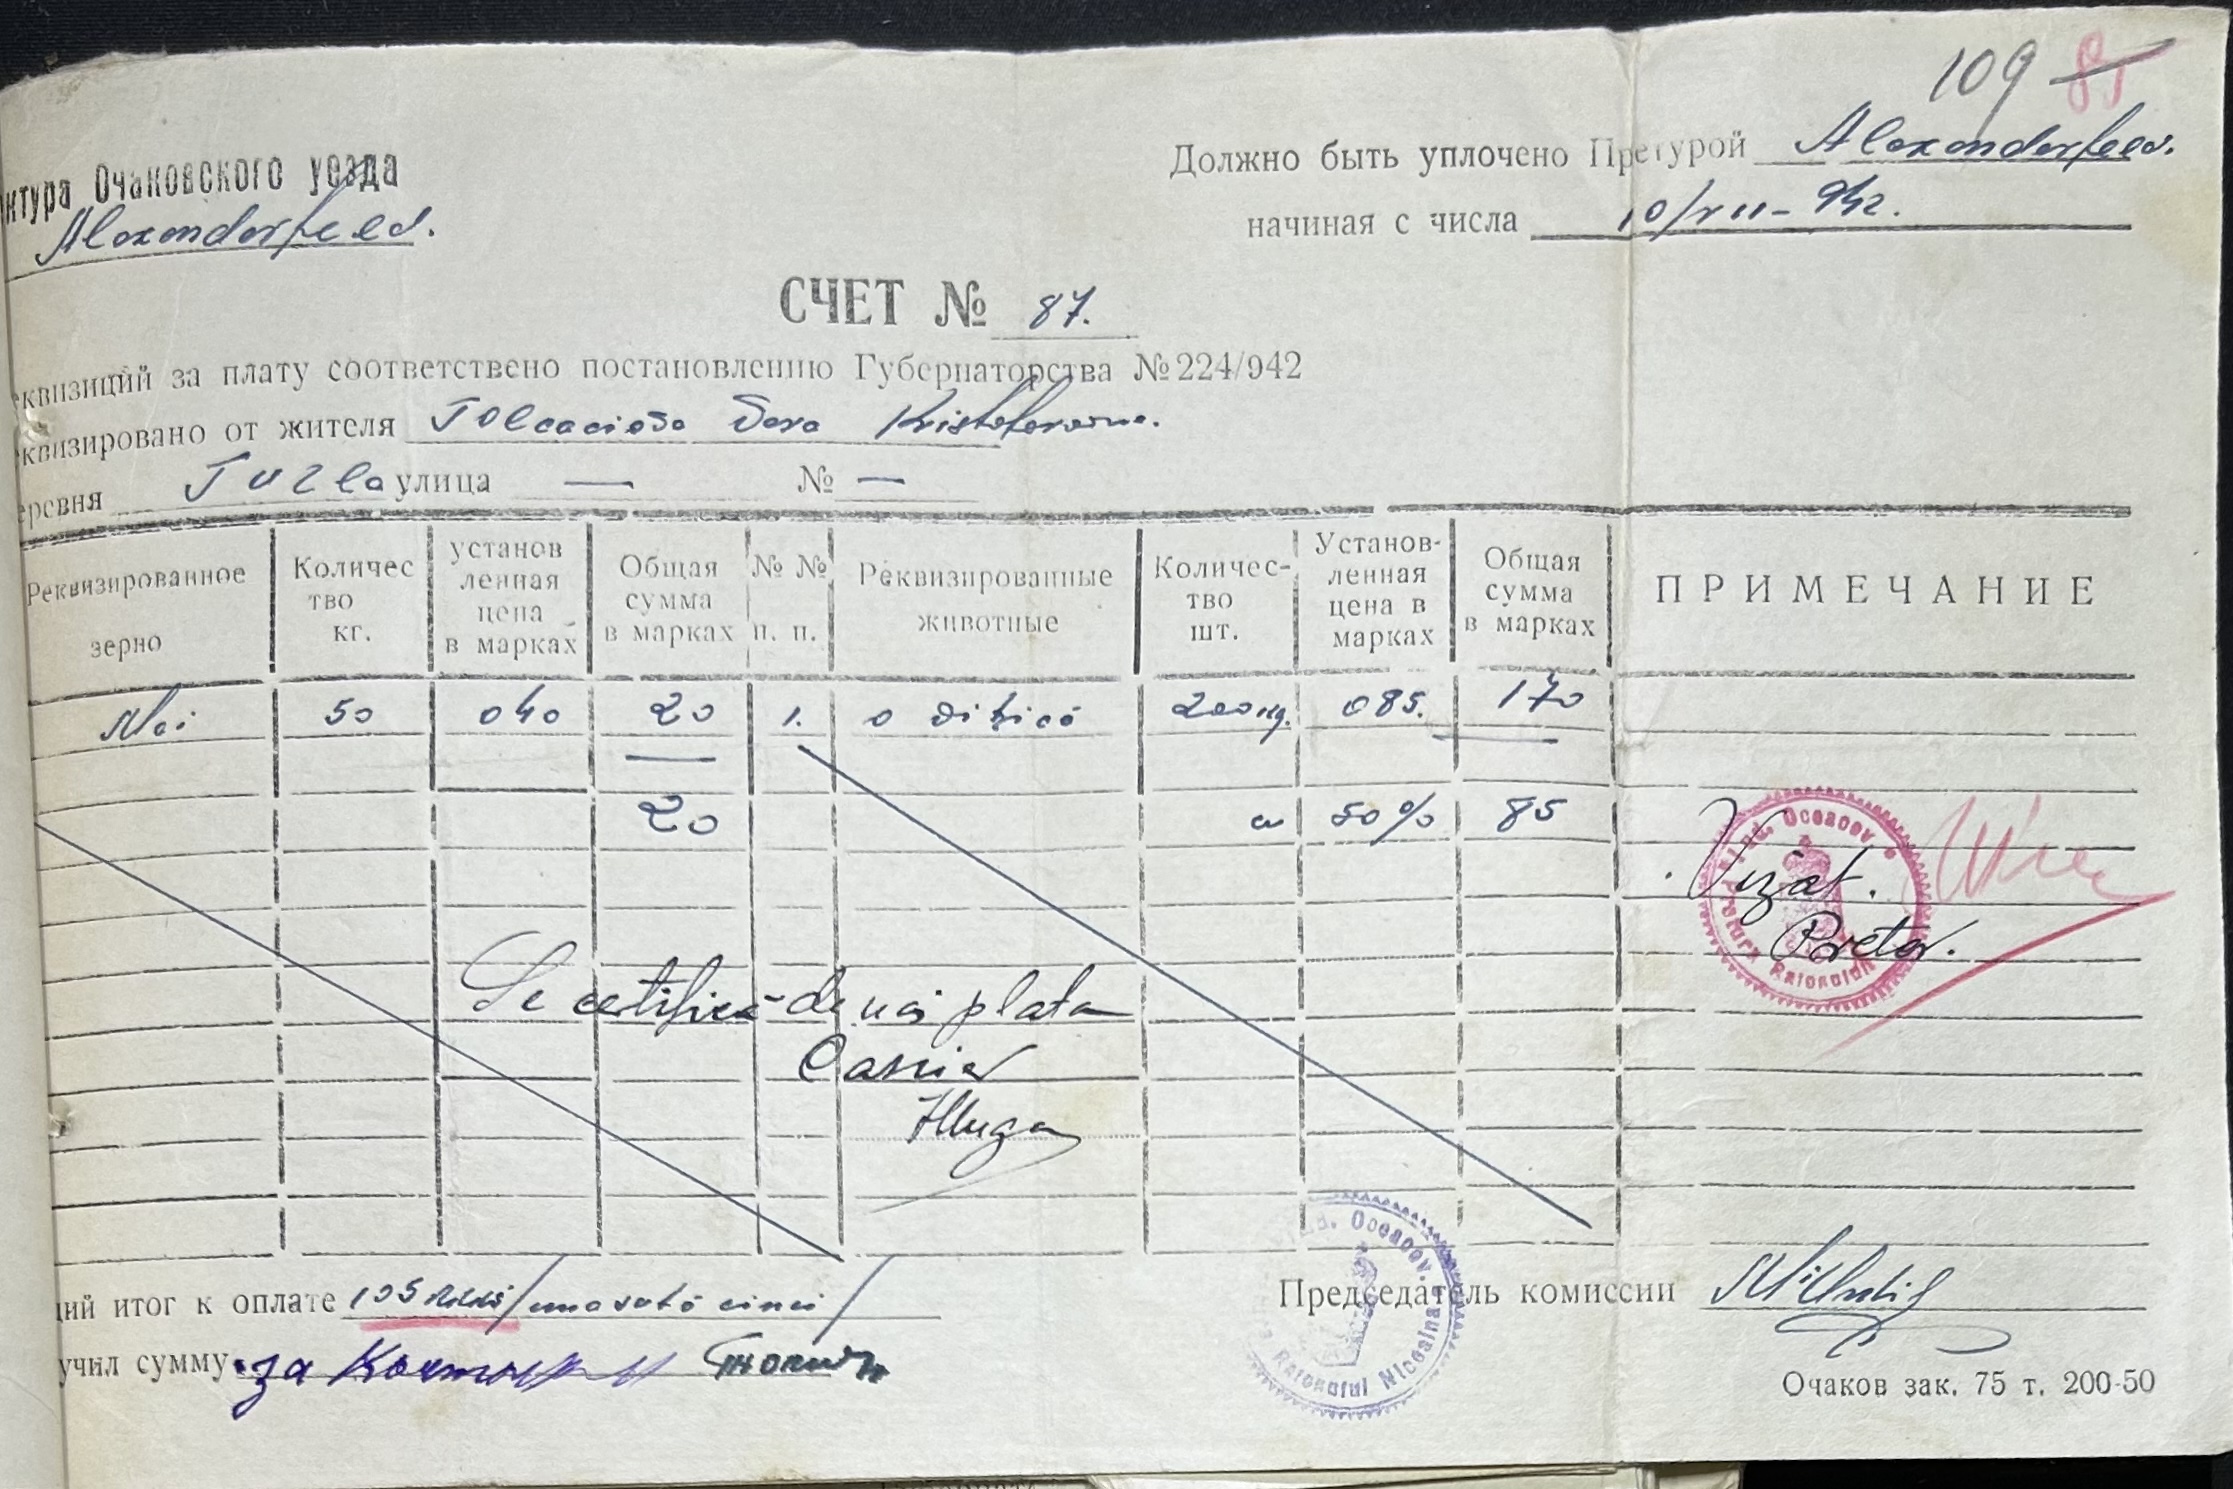 109 85
Должно быть уплочено Претурой Alexanderfeld.
ктура Очаковского уезда
Alexanderfeld.
начиная с числа 10/VII-942.
СЧЕТ № 87.
еквизиций за плату соответствено постановлению Губернаторства № 224/942
квизировано от жителя Dora
еревня Tuzla улица — № —
Реквизированное зерно
Количес тво кг.
установ ленная цена в марках
Общая сумма в марках
№ № п. п.
Реквизированные животные
Количес- тво шт.
Установ- ленная цена в марках
Общая сумма в марках
ПРИМЕЧАНИЕ
50 040 20 1. o 200 кg. 085. 170
20 50% 85
Jud. Oceacov
Pretura Raionului
Vizat.
Pretor.
Se certifică de noi plata
Casier
щий итог к оплате 105 /una sută cinci/
Председатель комиссии
учил сумму за
Jud. Oceacov.
Raionului
Очаков зак. 75 т. 200-50